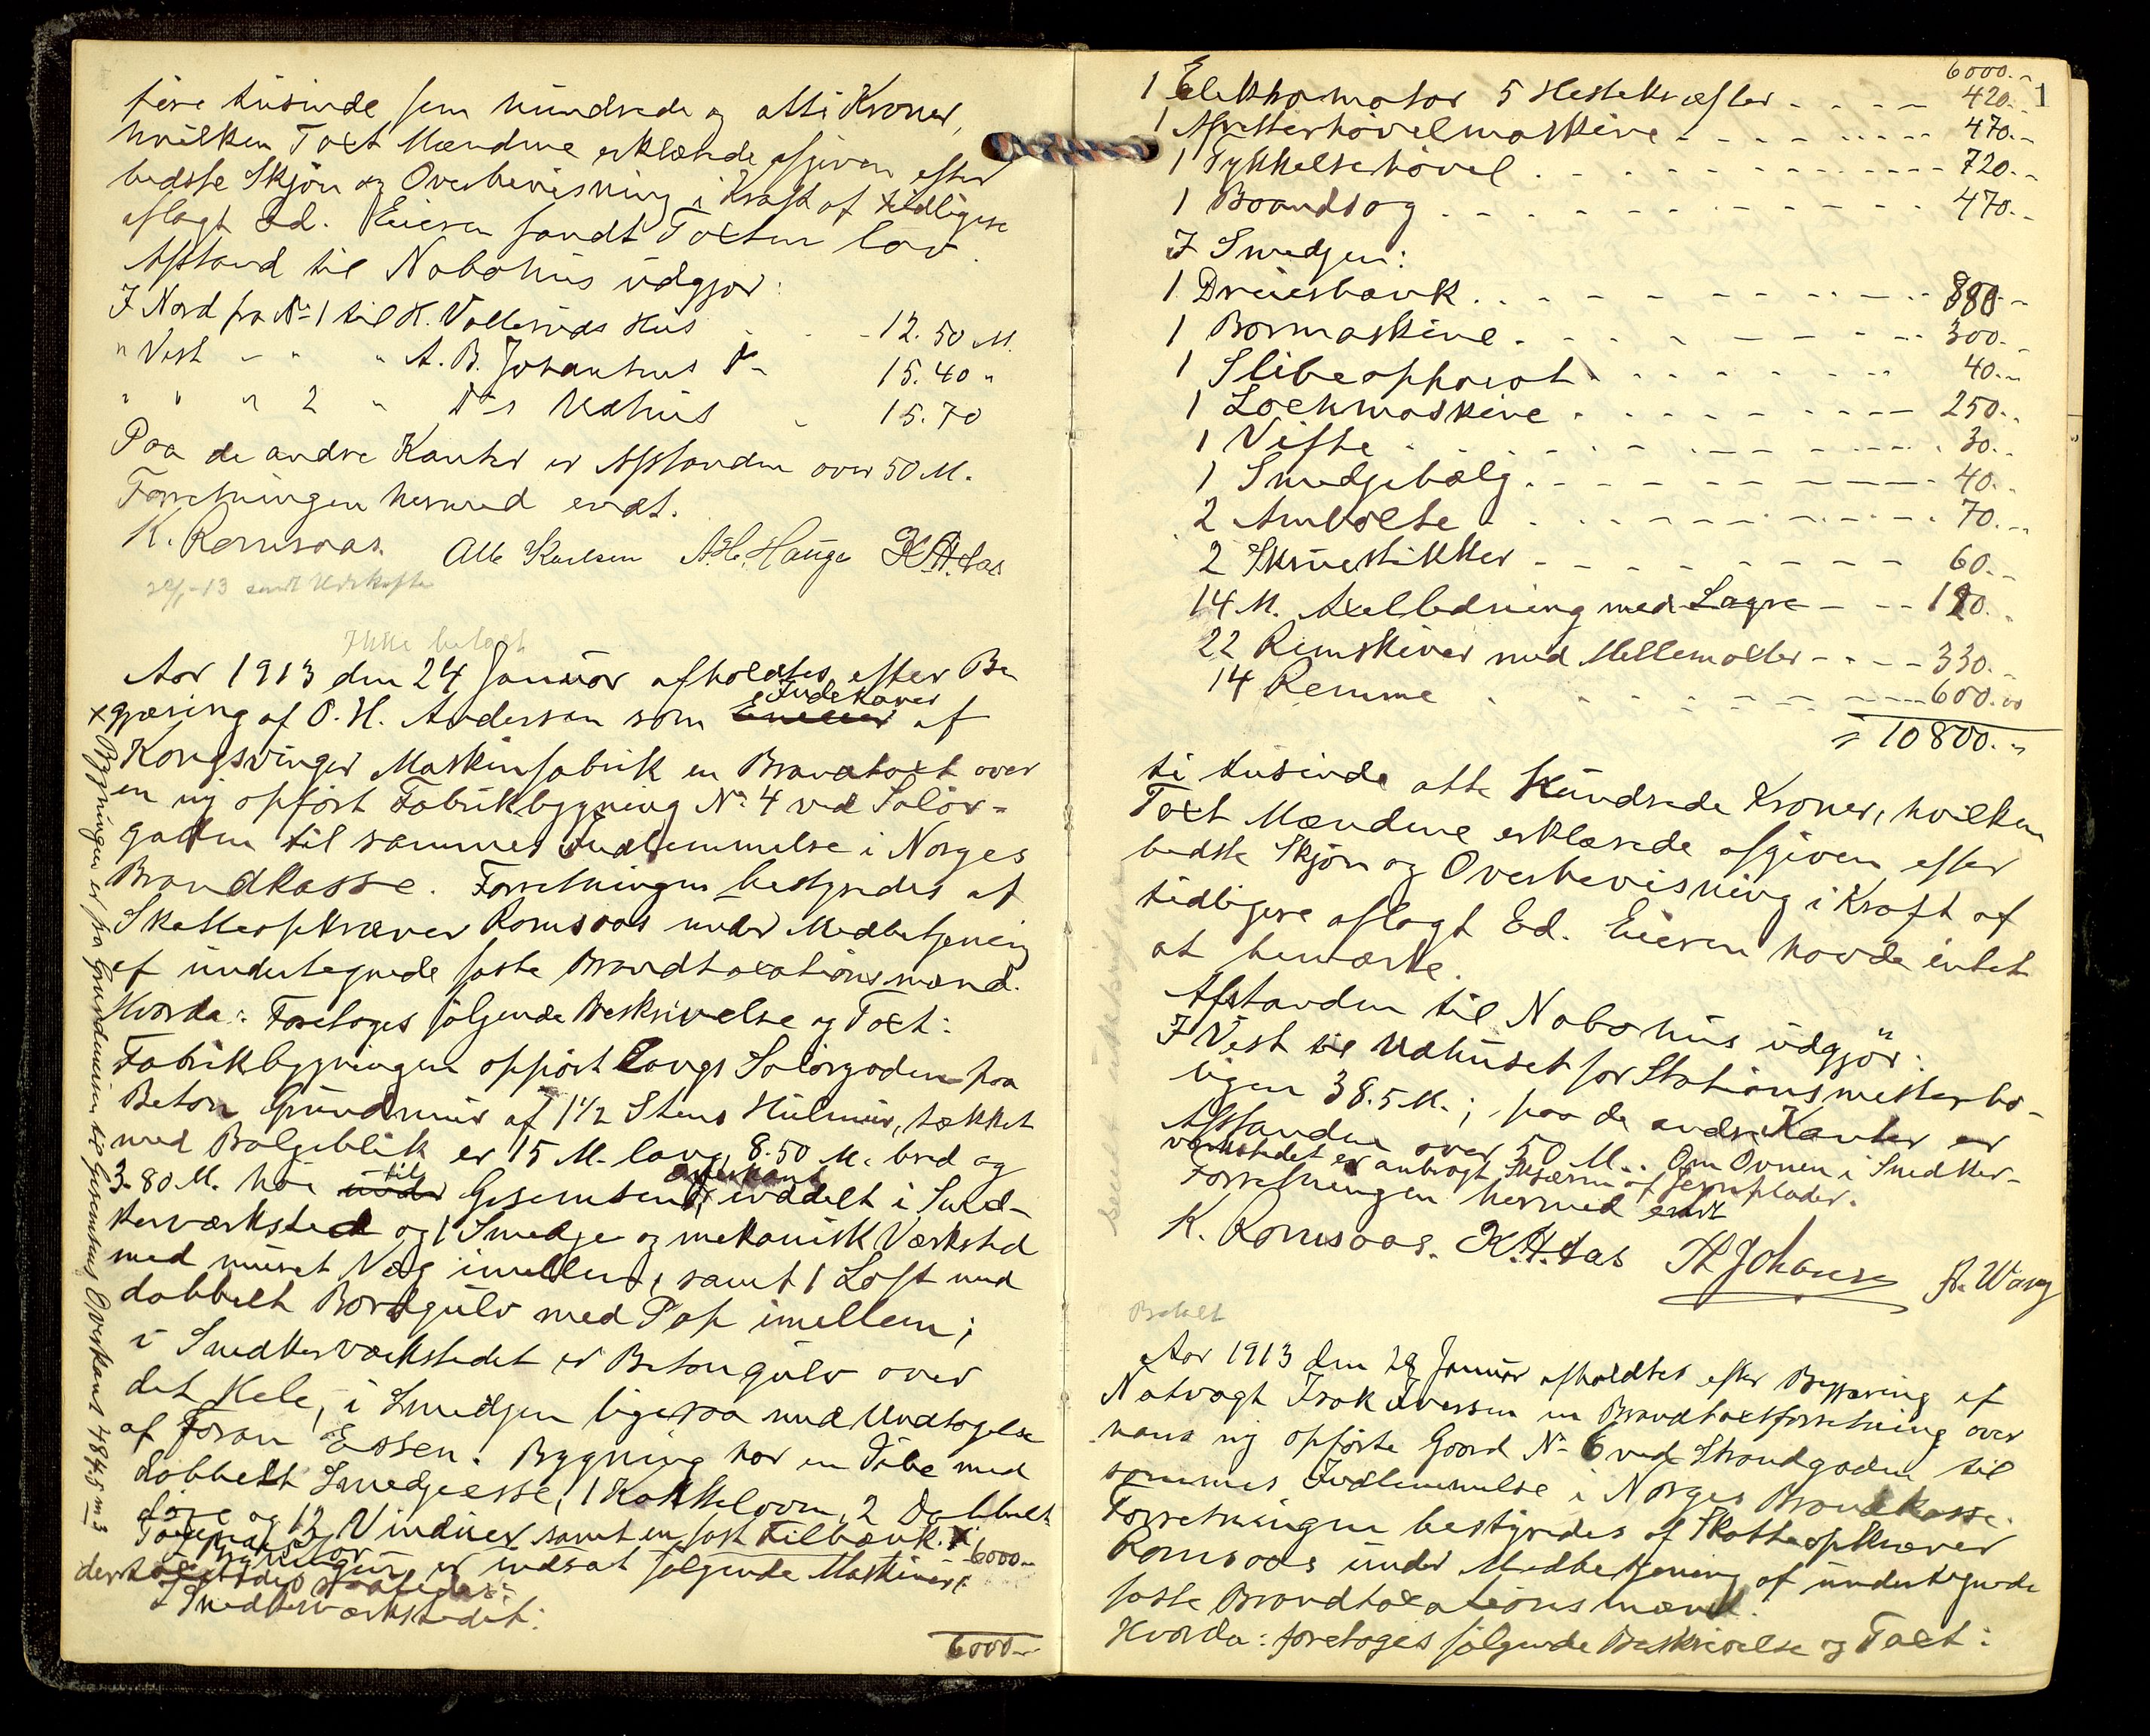 fire tusinde fem hundrede og otti Kroner,
hvilken Taxt Mændene erklærede afgiven efter
bedste Skjøn og Overbevisning i Kraft af tidligere
aflagt Ed. Eieren fandt Taxten lav.
Afstand til Nabohus udgjør:
I Nord fra No 1 til K. Volleruds Hus - - 12.50 M.
" Vest - " " A. B. Johansens Do 15.40 "
" " " 2 " Do s Udhus " 15.70
Paa de andre Kanter er Afstanden over 50 M.
Forretningen hermed endt.
K. Romsaas. Alb Karlsen A. H. Hauge K. H. Aas
-13 sendt Udskrifter
Ikke betalt
Aar 1913 den 24 Januar afholdtes efter Be
gjæring af O. H. Andersen som Indehaver af
Kongsvinger Maskinfabrik en Brandtaxt over
en ny opført Fabrikbygning No 4 ved Solør-
gaden til sammes Indlemmelse i Norges
Brandkasse. Forretningen bestyredes af
Skatteopkræver Romsaas under Medbetjening
af undertegnede faste Brandtaxationsmænd.
Hvorda: Foretoges følgende Beskrivelse og Taxt:
Fabrikbygningen opført langs Solørgaden paa
Beton Grundmur af 1 1/2 Stens Hulmur, tækket
med Bølgeblik er 15 M. lang, 8.50 M. bred og
3.80 M. høi under til Gesemsens Overkant, inddelt i Sned-
kerværksted og 1 Smedje og mekanisk Værksted
med muret Væg imellem, samt 1 Loft med
dobbelt Bordgulv med Pap imellem;
i Snedkerværkstedet er Betongulv over
det Hele, i Smedjen ligesaa med Undtagelse
af foran Essen. Bygning har en Pibe med
dobbelt Smedjeesse, 1 Kakkelovn, 2 Dobbelt
døre og 12 Vinduer samt en fast Filbænk. x 6000.-
I Bygningen er indsat følgende Maskiner:
I Snedkerværkstedet:
6000.-
x Bygningen er fra Grundmuren til Gesemsens Overkant 484.5 m3
1
6000.-
1 Elektromotor 5 Hestekræfter - - - - 420.-
1 Afretterhøvelmaskine - - - - 470.-
1 Tykkelsehøvel - - - - 720.-
1 Baandsag - - - - 470.-
I Smedjen:
1 Dreiesbænk - - - - 880.-
1 Bormaskine - - - - 300.-
1 Slibeapparat - - - - 40.-
1 Lochmaskine - - - - 250.-
1 Vifte - - - - 30.-
1 Smedjebælg - - - - 40.-
2 Ambolte - - - - 70.-
2 Skruestikker - - - - 60.-
14 M. Axelledning med Lagre - - - 120.-
22 Remskiver med Mellemaxler - - - - 330.-
14 Remme - - - - 600.00
= 10800.-
ti tusinde otte Hundrede Kroner, hvilken
Taxt Mændene erklærede afgiven efter
bedste Skjøn og Overbevisning i Kraft af
tidligere aflagt Ed. Eieren havde intet
at bemærke.
Afstanden til Nabohus udgjør:
I Vest til Udhuset for Stationsmesterbo-
ligen 38.5 M.; paa de andre Kanter er
Afstanden over 50 M.. Om Ovnen i Snedker-
værkstedet er anbragt Skjærm af Jernplader.
Forretningen hermed endt
K. Romsaas. K. H. Aas H Johansen A. Wang
Betalt
Aar 1913 den 28 Januar afholdtes efter Begjæring af
Natvagt Isak Iversen en Brandtaxtforretning over
hans ny opførte Gaard No 6 ved Strandgaden til
sammes Indlemmelse i Norges Brandkasse.
Forretningen bestyredes af Skatteopkræver
Romsaas under Medbetjening af undertegnede
faste Brandtaxationsmænd.
Hvorda: foretoges følgende Beskrivelse og Taxt: